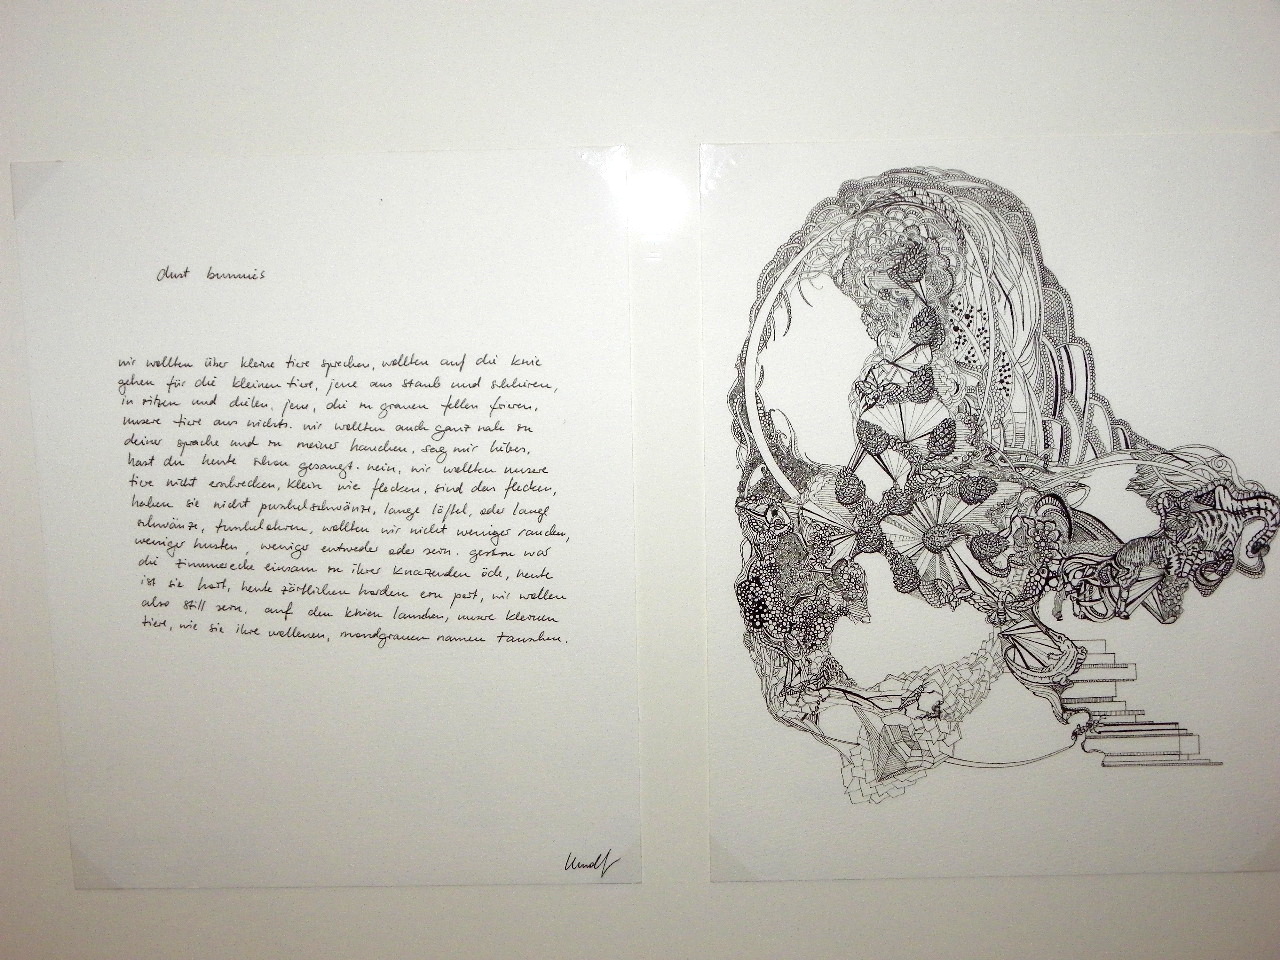 dust bunnies
wir wollten über kleine tiere sprechen, wollten auf die knie
gehen für die kleinen tiere, jene aus staub und schlieren,
in ritzen und dielen. jene, die in grauen fellen frieren,
unsere tiere aus nichts. wir wollten auch ganz nah an
deiner sprache und an meiner hauchen, sag mir liebes,
hast du heute schon gesaugt. nein, wir wollten unsere
tiere nicht erschrecken, klein wie flecken, sind das flecken,
haben sie nicht puschelschwänze, lange löffel, oder lang
schwänze, tunkelohren, wollten wir nicht weniger rauchen,
weniger husten, weniger entweder oder sein. gestern war
die zimmerecke einsam in ihrer knarzenden öde, heute
ist sie hort, heute zärtlichen horden ein port, wir wollen
also still sein, auf den knien lauschen, unsre kleinen
tiere, wie sie ihre wollenen, mondgrauen namen tauschen.